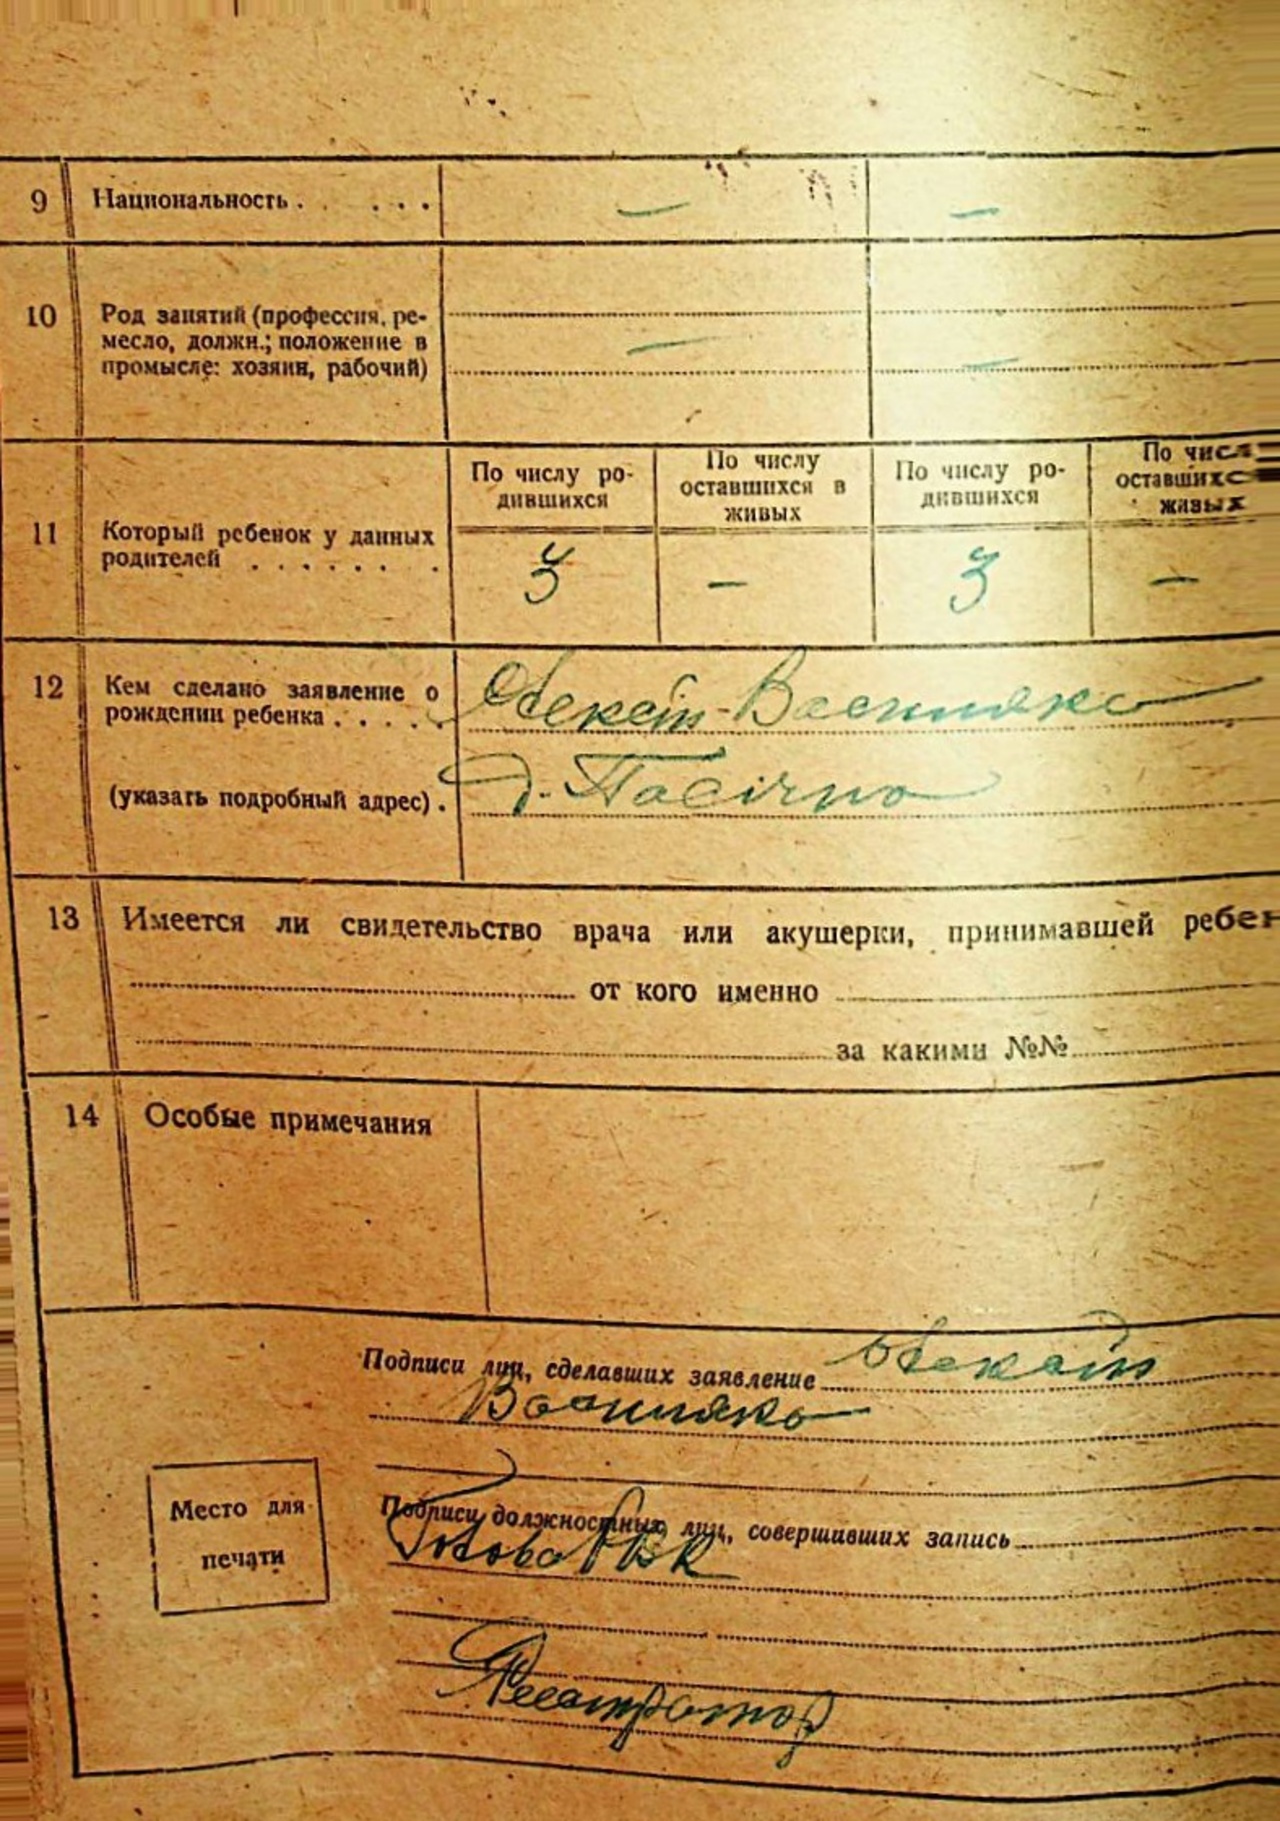 9 Национальность . . . . . — —
10 Род занятий (профессия, ре-
месло, должн.; положение в
промысле: хозяин, рабочий) — —
По числу ро-
дившихся
По числу
оставшихся в
живых
По числу ро-
дившихся
По числ
оставшихс
живых
11 Который ребенок у данных
родителей . . . . . . . 3 — 3 —
12 Кем сделано заявление о
рождении ребенка . . . .
(указать подробный адрес) . д. Пасічно
13 Имеется ли свидетельство врача или акушерки, принимавшей ребен
от кого именно
за какими №№
14 Особые примечания
Подписи лиц, сделавших заявление
Место для
печати
Подписи должностных лиц, совершивших запись
Голова
Реєстратор